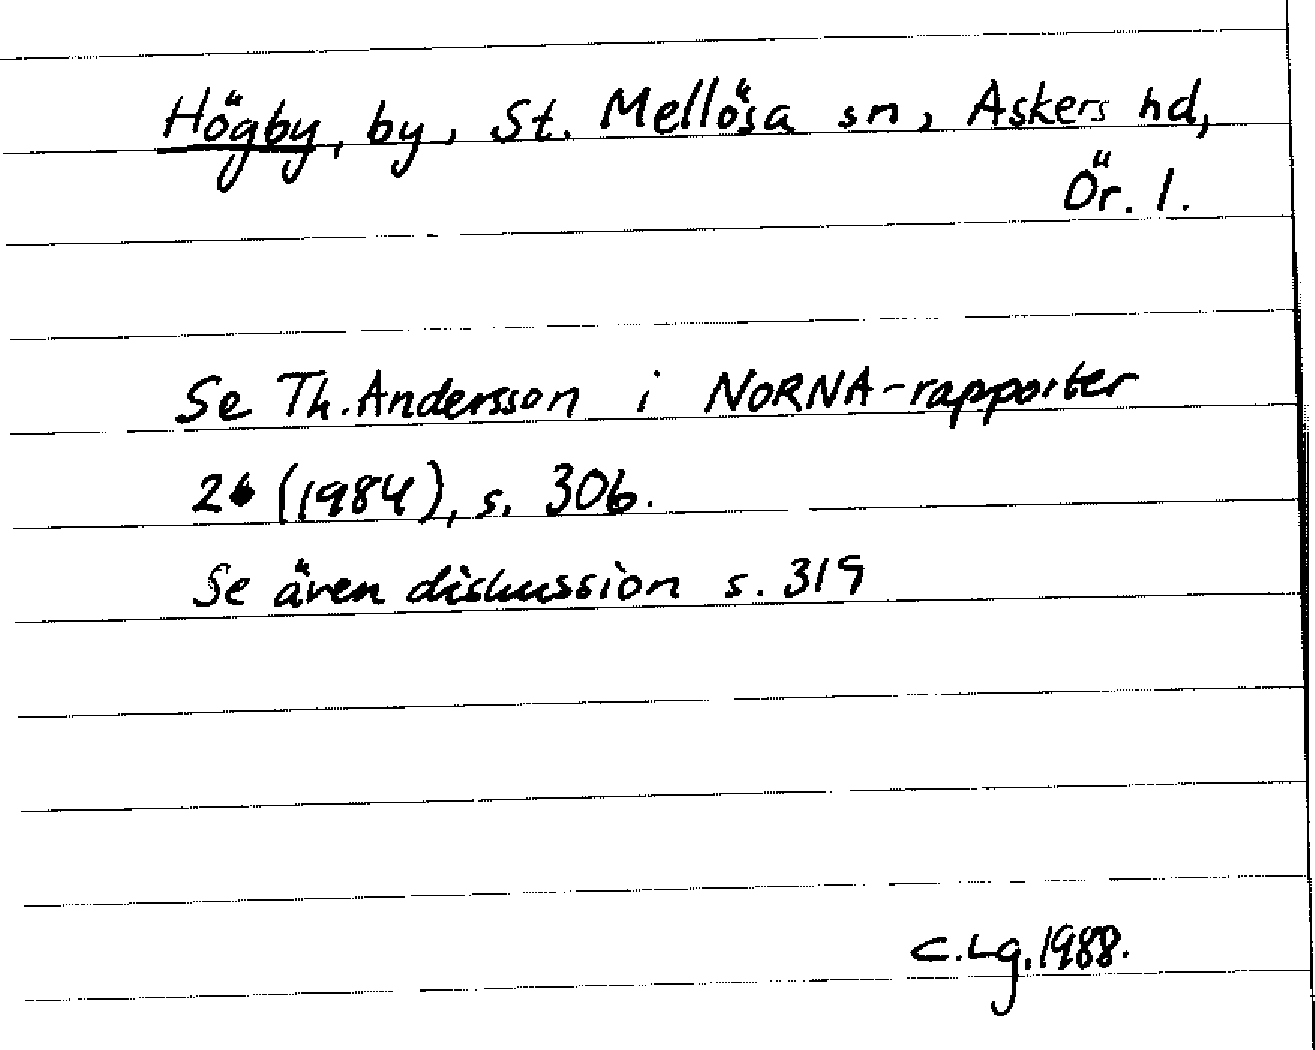 Högby, by, St. Mellösa sn, Askers hd,
Ör. l.
Se Th. Andersson i NORNA-rapporter
26 (1984), s. 306.
Se även diskussion s. 319
C.Lg. 1988.